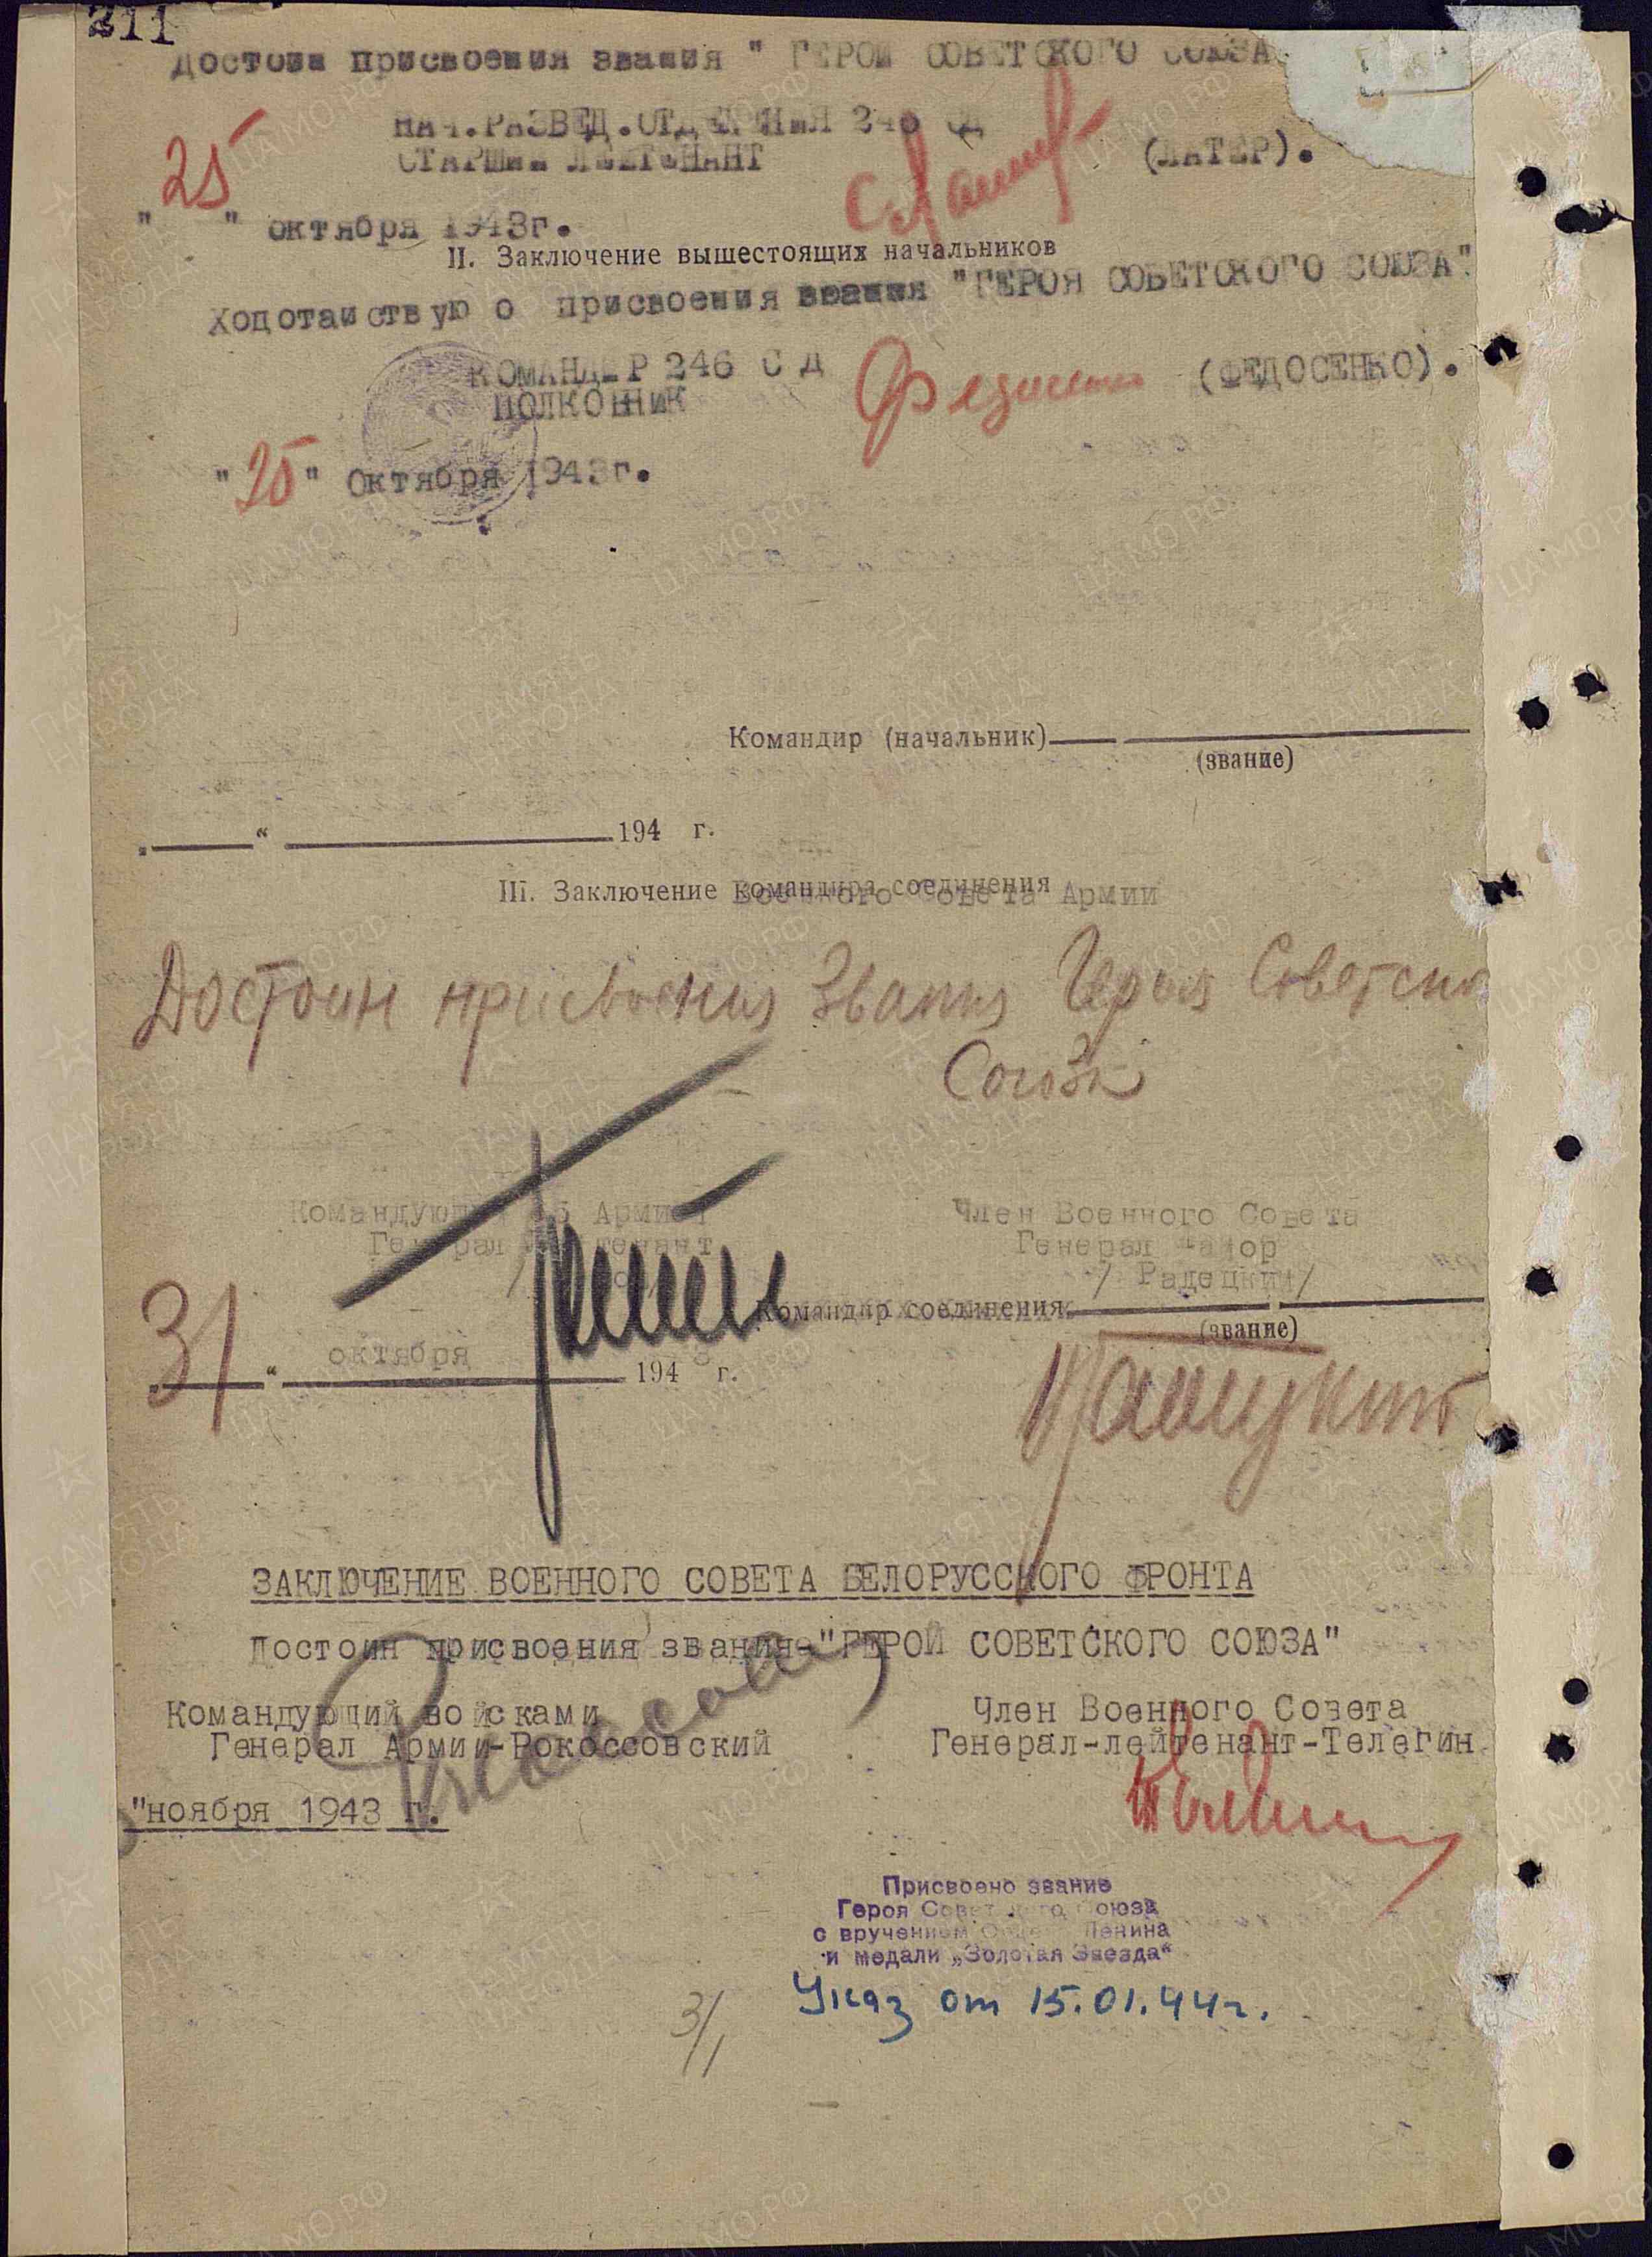 211
Достоин присвоения звания " ГЕРОЙ СОВЕТСКОГО СОЮЗА
НАЧ.РАЗВЕД.ОТДЕЛЕНИЯ 246 СД
СТАРШИЙ ЛЕЙТЕНАНТ
(ЛАТЕР).
"25" октября 1943г.
II. Заключение вышестоящих начальников
Ходотаиствую о присвоения звания "ГЕРОЯ СОВЕТСКОГО СОЮЗА".
КОМАНДИР 246 С Д
ПОЛКОВНИК
(ФЕДОСЕНКО).
"25" Октября 1943г.
Командир (начальник)
(звание)
„ “ 194 г.
III. Заключение командира соединения
Военного Совета Армии
Достоин присвоения звания Героя Советског
Союза
Командующий 65 Армией
Член Военного Совета
Генерал лейтенант
Генерал Майор
/ Радецкий/
Командир соединения
(звание)
31 “ октября 1943 г.
ЗАКЛЮЧЕНИЕ ВОЕННОГО СОВЕТА БЕЛОРУССКОГО ФРОНТА
Достоин присвоения звания-"ГЕРОЙ СОВЕТСКОГО СОЮЗА"
Командующий войсками
Генерал Армии-Рокоссовский
Член Военного Совета
Генерал-лейтенант-Телегин
"ноября 1943 г.
Присвоено звание
Героя Советского Союза
с вручением Ордена Ленина
и медали „Золотая Звезда“
Указ от 15.01.44г.
3/1
ПАМЯТЬ НАРОДА
ЦАМО РФ